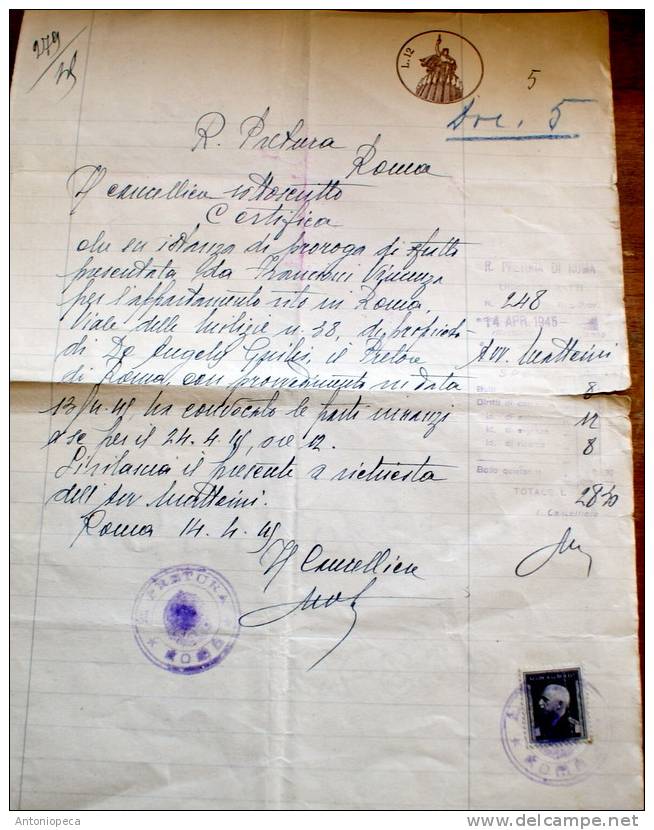 279
L. 12
5
Doc. 5
R. Pretura
Roma
Il cancelliere sottoscritto
Certifica
che su istanza di proroga di sfratto
presentata da Franconi Vincenzo
per l'appartamento sito in Roma,
Viale delle Milizie n. 38, di proprietà
di De Angelis, il Pretore
di Roma, con provvedimento in data
13/4.45, ha convocato le parti innanzi
a se per il 24.4.45, ore 12.
Si rilascia il presente a richiesta
dell'Avv Matteini.
Roma 14.4.45
Il Cancelliere
R. PRETURA DI ROMA
248
14 APR. 1945
Avv. Matteini
Bolli 8
Diritti di 12
Id. di 8
Bollo
TOTALE L. 28
Il Cancelliere
PRETURA
ROMA
ROMA
Antoniopeca
www.delcampe.net